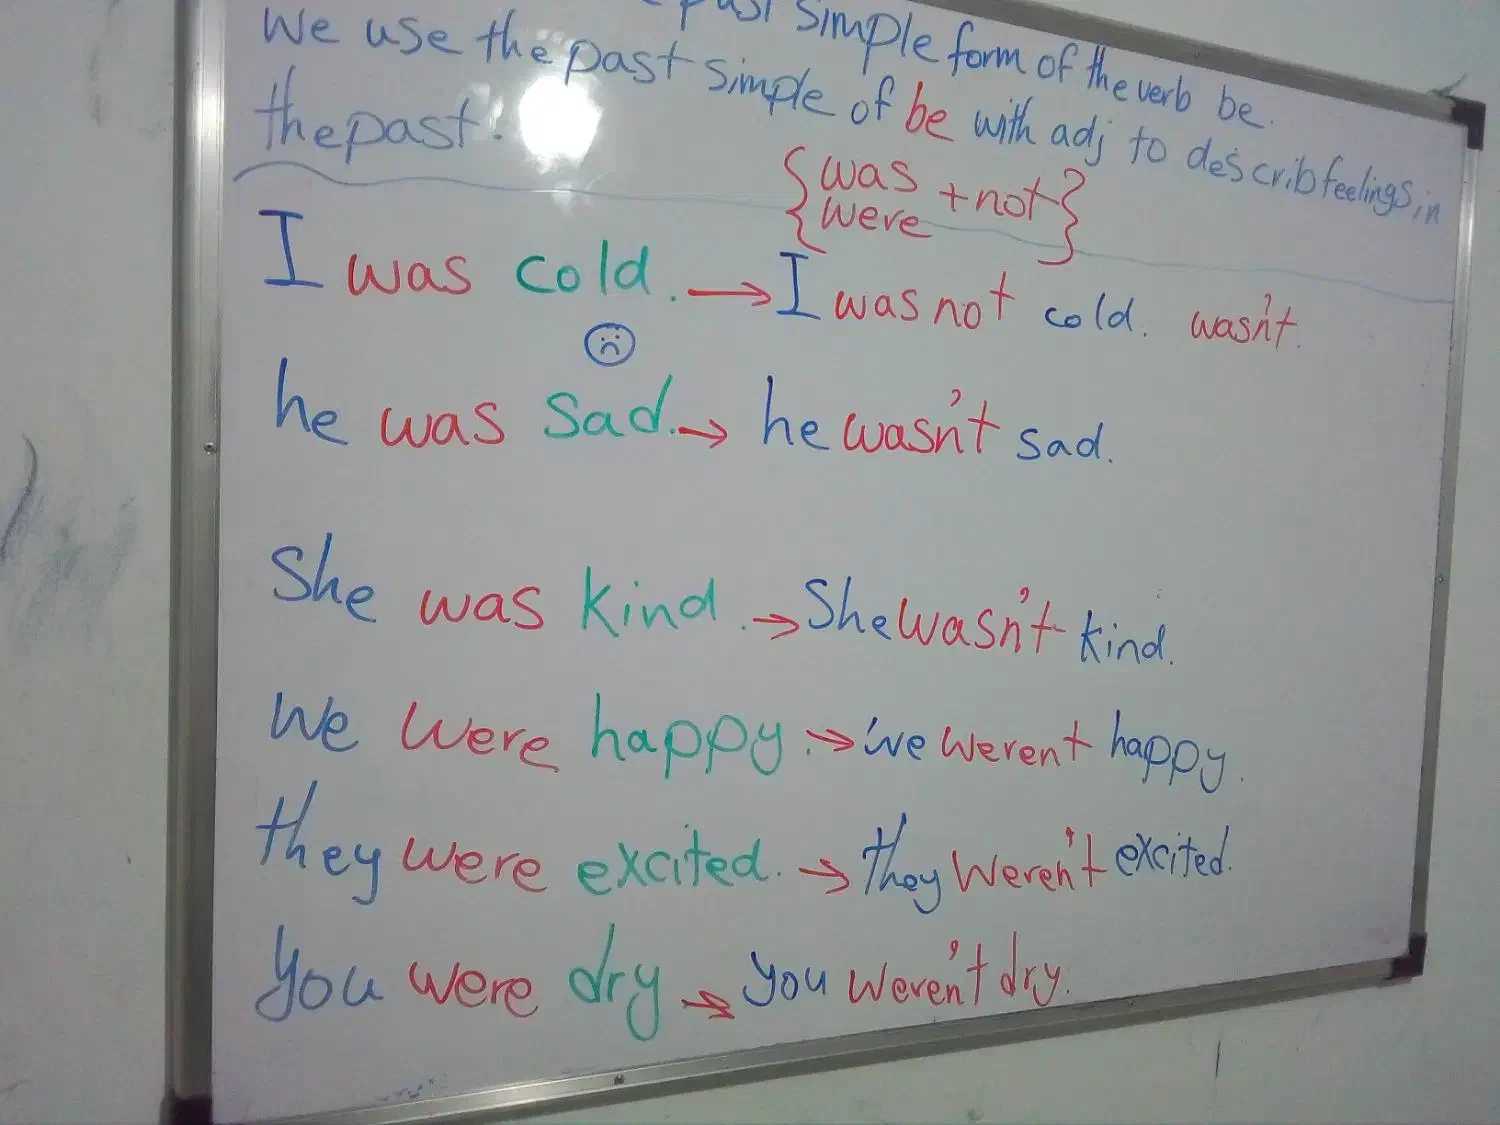 past simple form of the verb be.
We use the past simple of be with adj to describ feelings, in
the past.
{was were + not}
I was cold. → I was not cold. wasn't.
he was sad. → he wasn't sad.
She was kind. → She wasn't kind.
We were happy. → we werent happy.
they were excited. → they weren't excited.
you were dry → you weren't dry.